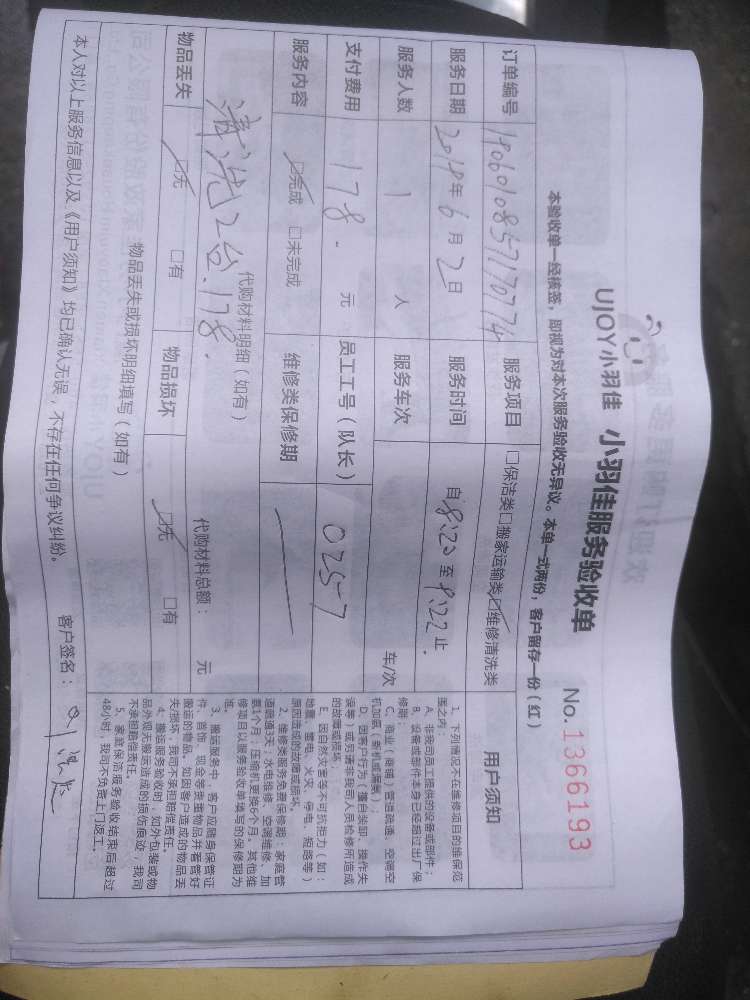 UJOY小羽佳 小羽佳服务验收单
No. 1366193
本验收单一经核签，即视为对本次服务验收无异议。本单一式两份，客户留存一份（红）
订单编号 1806010857170774 服务项目 □保洁类□搬家运输类☑维修清洗类
服务日期 2018年6月2日 服务时间 自8:20至9:22止
服务人数 1人 服务车次 车/次
支付费用 178.元 员工工号（队长） 0257
服务内容 ☑完成 □未完成 维修类保修期
代购材料明细（如有）
清洗2台.178.
代购材料总额： 元
物品丢失 ☑无 □有 物品损坏 ☑无 □有
物品丢失或损坏明细填写（如有）
本人对以上服务信息以及《用户须知》均已确认无误，不存在任何争议纠纷。
客户签名：
用户须知
1、下列情况不在维修项目的维保范
围之内：
A、非我司员工提供的设备或部件；
B、设备或部件本身已经超过出厂保
修期；
C、商业（商铺）管道疏通、空调空
机加氟（新机或漏氟）；
D、因客户行为（擅自装卸、操作失
误等）或另请非我司人员检修所造成
的故障或损坏；
E、因自然灾害等不可抗拒力（如：
地震、雷电、火灾、导电、短路等）
原因造成的故障或损坏。
2、维修类服务免费保修期：家庭管
道疏通3天；水电维修、空调维修、加
氟1个月；压缩机更换6个月；其他维
修项目以服务验收单填写的保修期为
准。
3、搬运服务中，客户应随身保管证
件、首饰、现金等贵重物品并看管好
搬运的物品。如因客户造成的物品丢
失/损坏，我司不承担赔偿责任。
4、搬运服务验收时，如外包装或物
品外观无搬运造成的损伤痕迹，我司
不承担赔偿责任。
5、家庭保洁服务验收结束后超过
48小时，我司不负责上门返工。